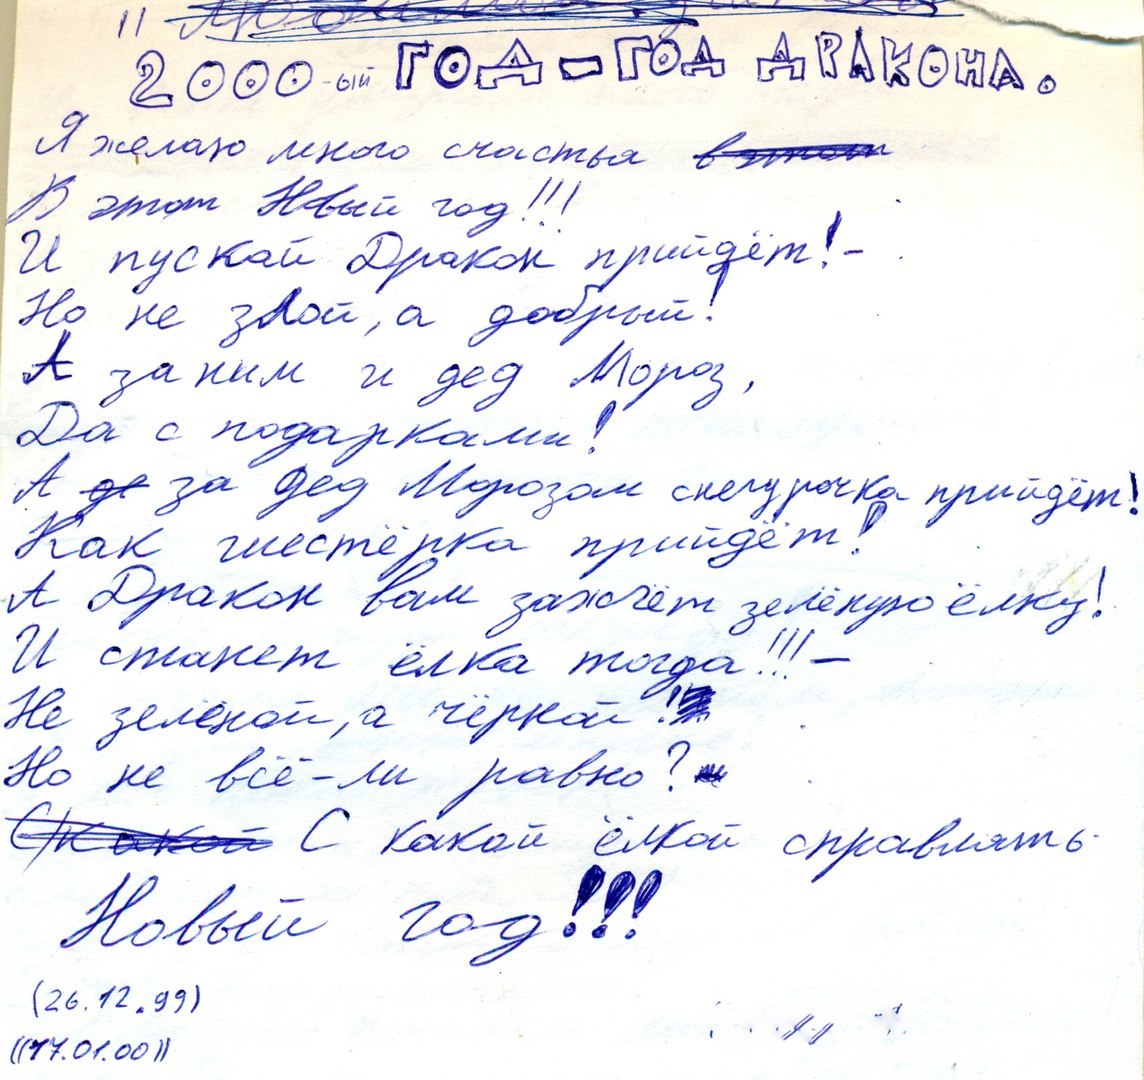 11
2000-ый ГОД - ГОД ДРАКОНА.
Я желаю много счастья
В этот Новый год!!!
И пускай Дракон прийдёт! -
Но не злой, а добрый!
А за ним и дед Мороз,
Да с подарками!
А за дед Морозом снегурочка прийдёт!
Как шестёрка прийдёт!
А Дракон вам зажчёт зелёную ёлку!
И станет ёлка тогда!!! -
Не зелёной, а чёрной!
Но не всё-ли равно?
С какой ёлкой справлять
Новый год!!!
(26.12.99)
((17.01.00))